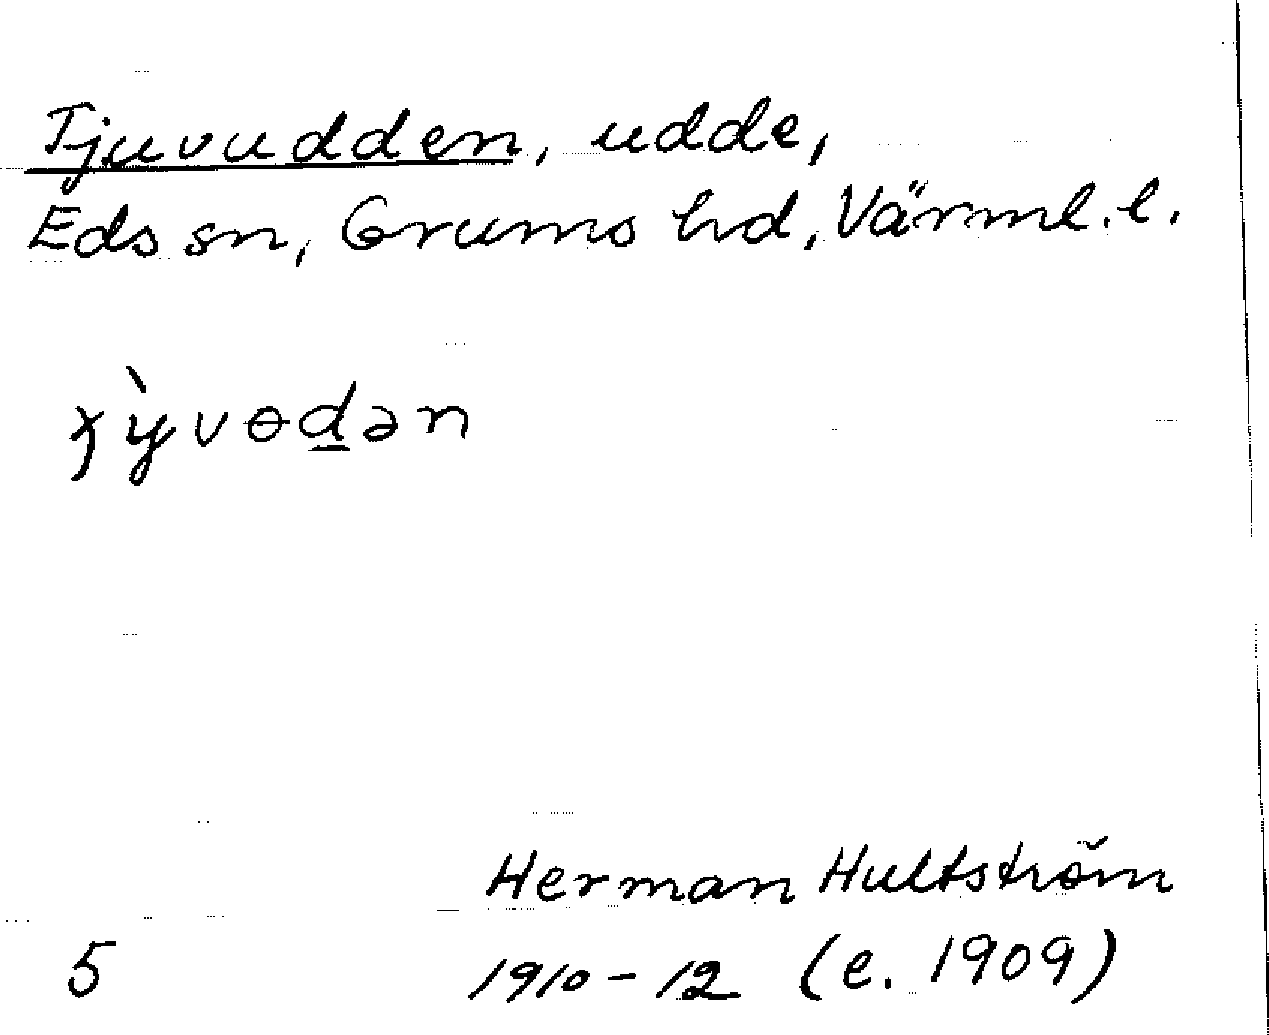 Tjuvudden, udde,
Eds sn, Grums hd, Värml. l.
5
Herman Hultström
1910-12 (e. 1909)